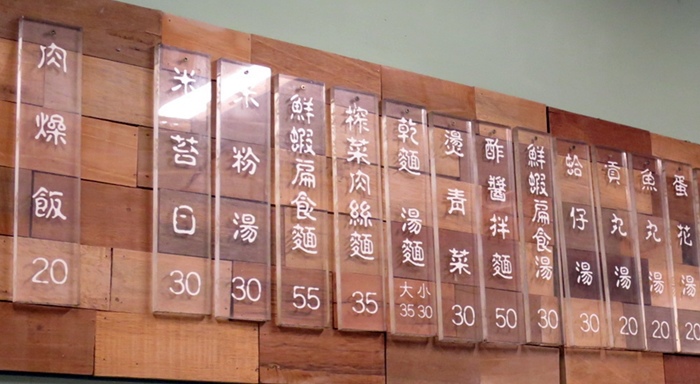 肉燥飯 20
米苔目 30
米粉湯 30
鮮蝦扁食麵 55
榨菜肉絲麵 35
乾麵 湯麵 大35 小30
燙青菜 30
酢醬拌麵 50
鮮蝦扁食湯 30
蛤仔湯 30
貢丸湯 20
魚丸湯 20
蛋花湯 20